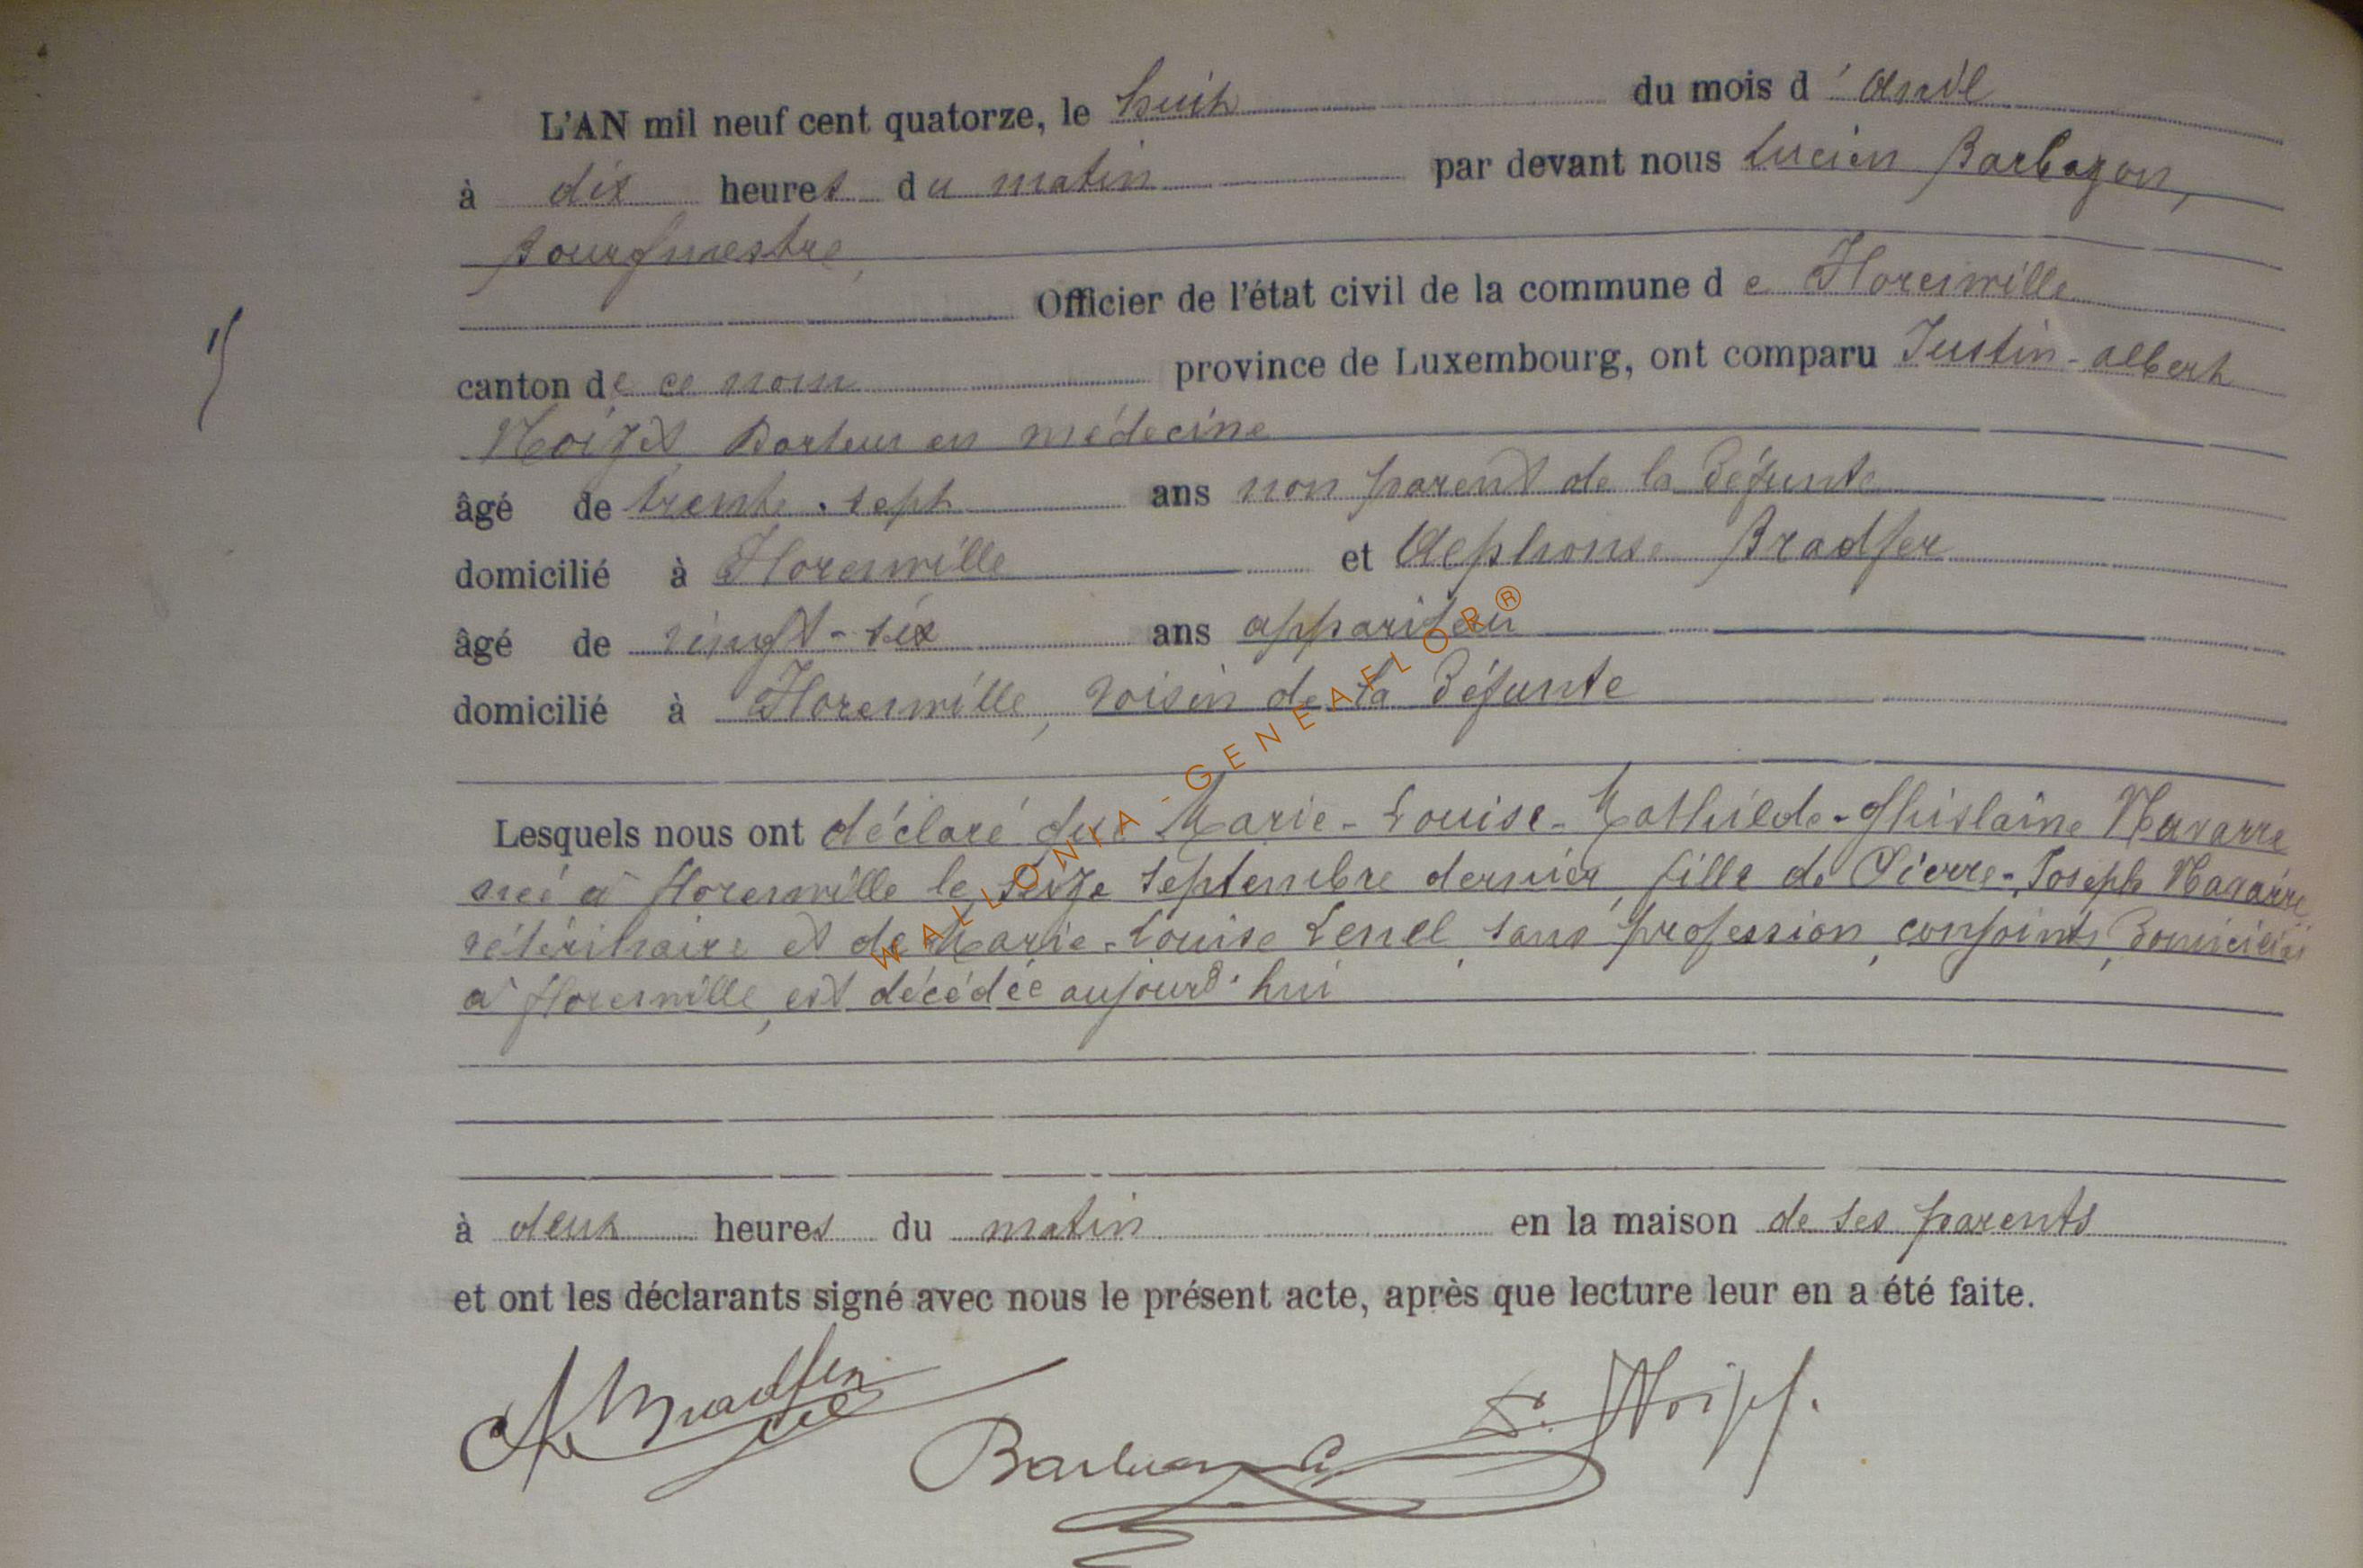 L'AN mil neuf cent quatorze, le huit du mois d'avril
à dix heures du matin par devant nous Lucien Barbazon,
Bourgmestre,
Officier de l'état civil de la commune de Florenville
canton de ce nom province de Luxembourg, ont comparu Justin-Albert
Noizet Docteur en médecine
âgé de trente-sept ans non parent de la défunte
domicilié à Florenville et Alphonse Bradfer
âgé de vingt-six ans appariteur
domicilié à Florenville, voisin de la défunte
Lesquels nous ont déclaré que Marie-Louise-Mathilde-Ghislaine Navarre
née à Florenville le seize septembre dernier, fille de Pierre-Joseph Navarre,
vétérinaire et de Marie-Louise Lenel, sans profession, conjoints, domiciliés
à Florenville, est décédée aujourd'hui
à deux heures du matin en la maison de ses parents
et ont les déclarants signé avec nous le présent acte, après que lecture leur en a été faite.
Bradfer
WALLONIA-GENEAFLOR®